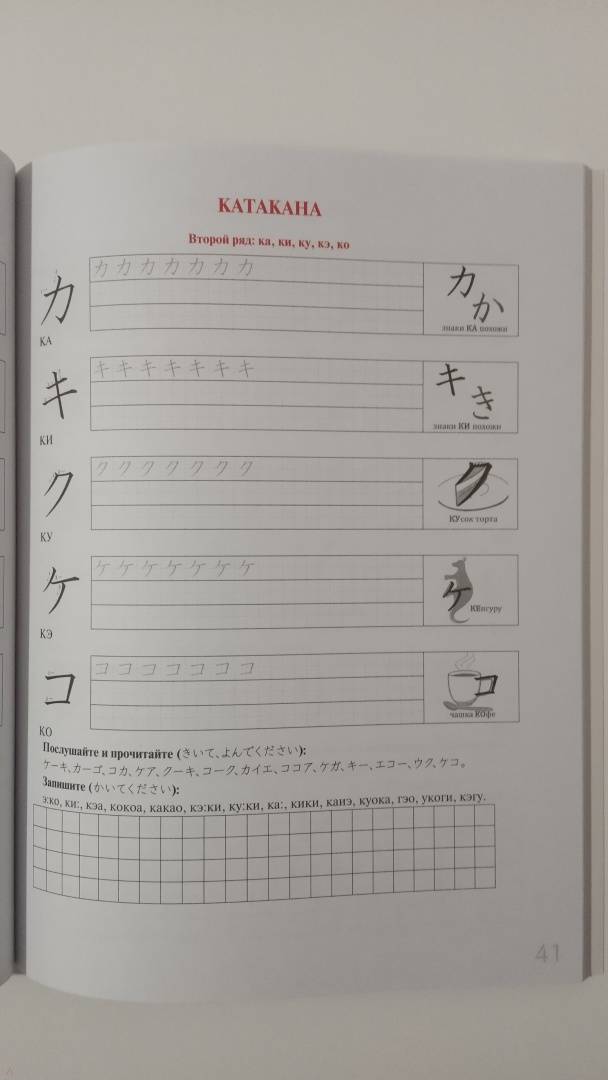 КАТАКАНА
Второй ряд: ка, ки, ку, кэ, ко
カ
カ カ カ カ カ カ カ
カ か
знаки КА похожи
КА
キ
キ キ キ キ キ キ キ
キ き
знаки КИ похожи
КИ
ク
ク ク ク ク ク ク ク
ク
КУсок торта
КУ
ケ
ケ ケ ケ ケ ケ ケ ケ
ケ
КЕнгуру
КЭ
コ
コ コ コ コ コ コ コ
コ
чашка КОфе
КО
Послушайте и прочитайте (きいて、よんでください):
ケーキ、カーゴ、コカ、ケア、クーキ、コーク、カイエ、ココア、ケガ、キー、エコー、ウク、ケコ。
Запишите (かいてください):
э:ко, ки:, кэа, кокоа, какао, кэ:ки, ку:ки, ка:, кики, каиэ, куока, гэо, укоги, кэгу.
41